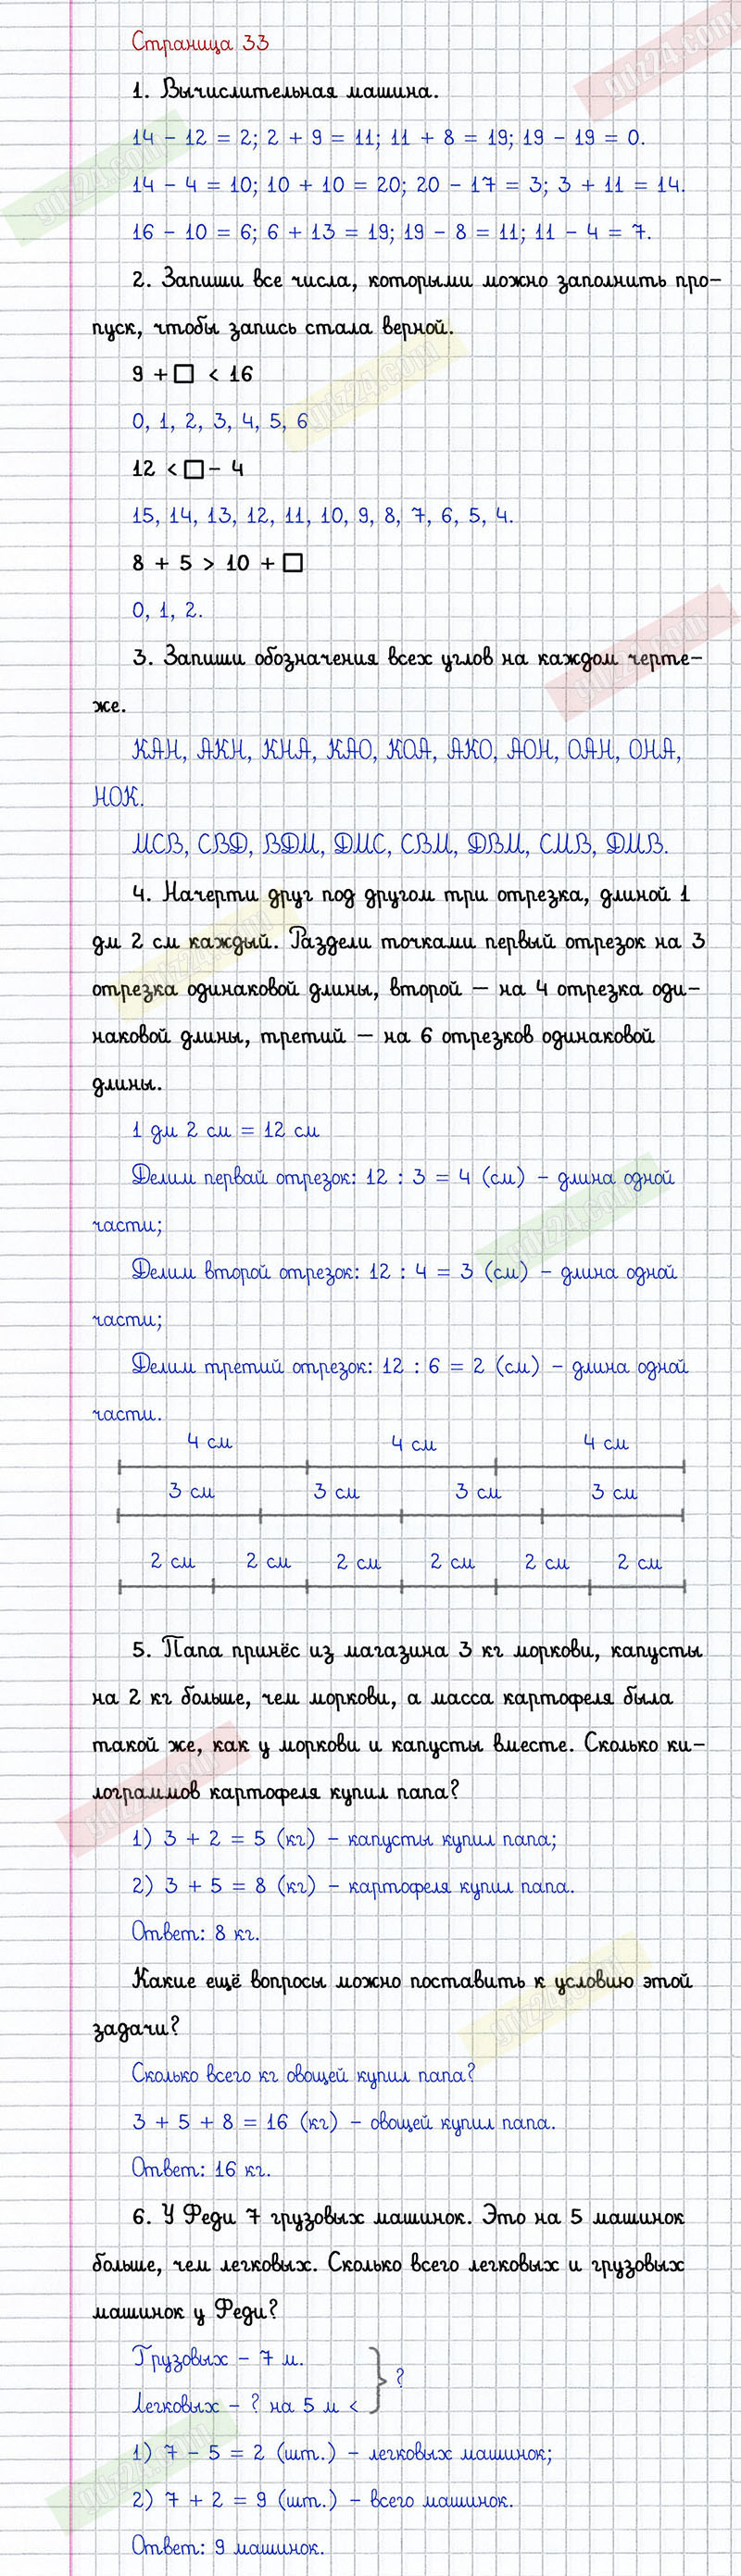 Страница 33
1. Вычислительная машина.
14 - 12 = 2; 2 + 9 = 11; 11 + 8 = 19; 19 - 19 = 0.
14 - 4 = 10; 10 + 10 = 20; 20 - 17 = 3; 3 + 11 = 14.
16 - 10 = 6; 6 + 13 = 19; 19 - 8 = 11; 11 - 4 = 7.
2. Запиши все числа, которыми можно заполнить про-
пуск, чтобы запись стала верной.
9 + □ < 16
0, 1, 2, 3, 4, 5, 6
12 < □ - 4
15, 14, 13, 12, 11, 10, 9, 8, 7, 6, 5, 4.
8 + 5 > 10 + □
0, 1, 2.
3. Запиши обозначения всех углов на каждом черте-
же.
КАН, АКН, КНА, КАО, КОА, АКО, АОН, ОАН, ОНА,
НОК.
МСВ, СВD, ВDМ, DМС, СВМ, DВМ, СМВ, DМВ.
4. Начерти друг под другом три отрезка, длиной 1
дм 2 см каждый. Раздели точками первый отрезок на 3
отрезка одинаковой длины, второй — на 4 отрезка оди-
наковой длины, третий — на 6 отрезков одинаковой
длины.
1 дм 2 см = 12 см
Делим первай отрезок: 12 : 3 = 4 (см) - длина одной
части;
Делим второй отрезок: 12 : 4 = 3 (см) - длина одной
части;
Делим третий отрезок: 12 : 6 = 2 (см) - длина одной
части.
4 см 4 см 4 см
3 см 3 см 3 см 3 см
2 см 2 см 2 см 2 см 2 см 2 см
5. Папа принёс из магазина 3 кг моркови, капусты
на 2 кг больше, чем моркови, а масса картофеля была
такой же, как у моркови и капусты вместе. Сколько ки-
лограммов картофеля купил папа?
1) 3 + 2 = 5 (кг) - капусты купил папа;
2) 3 + 5 = 8 (кг) - картофеля купил папа.
Ответ: 8 кг.
Какие ещё вопросы можно поставить к условию этой
задачи?
Сколько всего кг овощей купил папа?
3 + 5 + 8 = 16 (кг) - овощей купил папа.
Ответ: 16 кг.
6. У Феди 7 грузовых машинок. Это на 5 машинок
больше, чем легковых. Сколько всего легковых и грузовых
машинок у Феди?
Грузовых - 7 м.
?
Легковых - ? на 5 м <
1) 7 - 5 = 2 (шт.) - легковых машинок;
2) 7 + 2 = 9 (шт.) - всего машинок.
Ответ: 9 машинок.